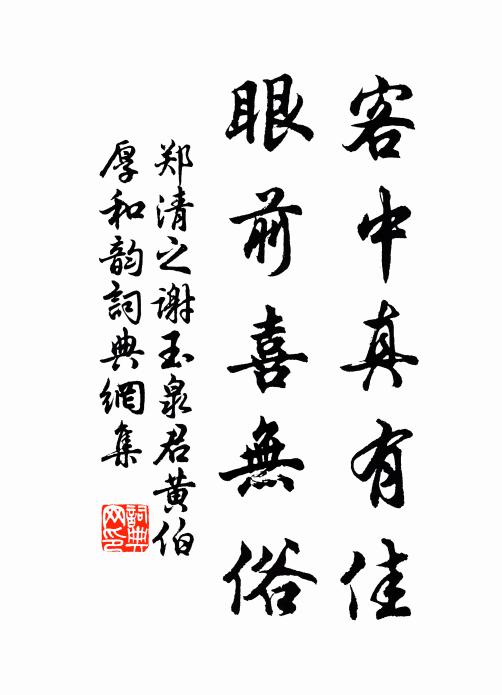 客中真有佳
眼前喜無俗
郑清之谢玉泉君黄伯
厚和韵詞典網集
詞典网印